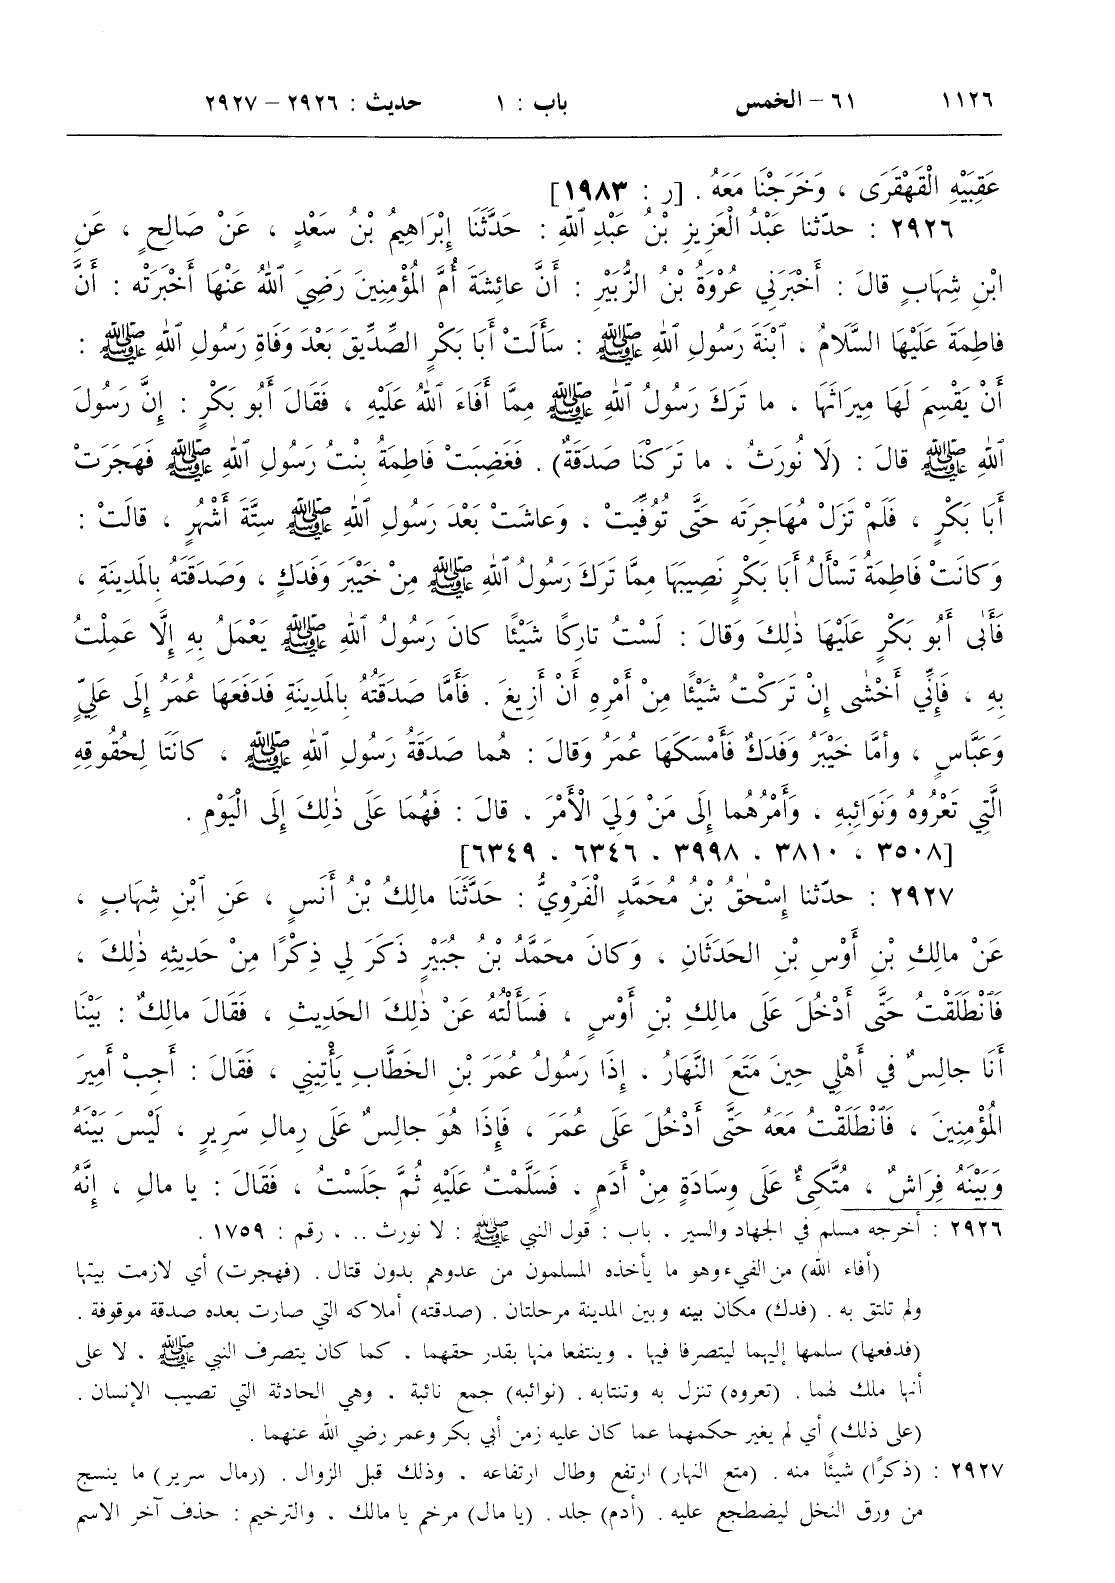 ١١٢٦ ٦١ – الخمس باب : ١ حديث : ٢٩٢٦ – ٢٩٢٧
عَقِبَيْهِ الْقَهْقَرَى ، وَخَرَجْنَا مَعَهُ . [ر : ١٩٨٣]
٢٩٢٦ : حدّثنا عَبْدُ الْعَزِيزِ بْنُ عَبْدِ ٱللهِ : حَدَّثَنَا إِبْرَاهِيمُ بْنُ سَعْدٍ ، عَنْ صَالِحٍ ، عَنِ
ابْنِ شِهَابٍ قالَ : أَخْبَرَنِي عُرْوَةُ بْنُ الزُّبَيْرِ : أَنَّ عائِشَةَ أُمَّ الْمُؤْمِنِينَ رَضِيَ ٱللهُ عَنْهَا أَخْبَرَتْه : أَنَّ
فاطِمَةَ عَلَيْهَا السَّلَامُ ، ٱبْنَةَ رَسُولِ ٱللهِ ﷺ : سَأَلَتْ أَبَا بَكْرٍ الصِّدِّيقَ بَعْدَ وَفَاةِ رَسُولِ ٱللهِ ﷺ :
أَنْ يَقْسِمَ لَهَا مِيرَاثَهَا ، ما تَرَكَ رَسُولُ ٱللهِ ﷺ مِمَّا أَفَاءَ ٱللهُ عَلَيْهِ ، فَقَالَ أَبُو بَكْرٍ : إِنَّ رَسُولَ
ٱللهِ ﷺ قالَ : (لَا نُورَثُ ، ما تَرَكْنَا صَدَقَةٌ) . فَغَضِبَتْ فَاطِمَةُ بِنْتُ رَسُولِ ٱللهِ ﷺ فَهَجَرَتْ
أَبَا بَكْرٍ ، فَلَمْ تَزَلْ مُهَاجِرَتَه حَتَّى تُوُفِّيَتْ ، وَعاشَتْ بَعْدَ رَسُولِ ٱللهِ ﷺ سِتَّةَ أَشْهُرٍ ، قالَتْ :
وَكانَتْ فَاطِمَةُ تَسْأَلُ أَبَا بَكْرٍ نَصِيبَهَا مِمَّا تَرَكَ رَسُولُ ٱللهِ ﷺ مِنْ خَيْبَرَ وَفَدَكٍ ، وَصَدَقَتَهُ بِالْمَدِينَةِ ،
فَأَبَى أَبُو بَكْرٍ عَلَيْهَا ذٰلِكَ وَقالَ : لَسْتُ تارِكًا شَيْئًا كانَ رَسُولُ ٱللهِ ﷺ يَعْمَلُ بِهِ إِلَّا عَمِلْتُ
بِهِ ، فَإِنِّي أَخْشَى إِنْ تَرَكْتُ شَيْئًا مِنْ أَمْرِهِ أَنْ أَزِيغَ . فَأَمَّا صَدَقَتُهُ بِالْمَدِينَةِ فَدَفَعَهَا عُمَرُ إِلَى عَلِيٍّ
وَعَبَّاسٍ ، وأمَّا خَيْبَرُ وَفَدَكٌ فَأَمْسَكَهَا عُمَرُ وَقالَ : هُما صَدَقَةُ رَسُولِ ٱللهِ ﷺ ، كانَتَا لِحُقُوقِهِ
الَّتِي تَعْرُوهُ وَنَوَائِبِهِ ، وَأَمْرُهُما إِلَى مَنْ وَلِيَ الْأَمْرَ ، قالَ : فَهُمَا عَلَى ذٰلِكَ إِلَى الْيَوْمِ .
[٣٥٠٨ ، ٣٨١٠ ، ٣٩٩٨ ، ٦٣٤٦ ، ٦٣٤٩]
٢٩٢٧ : حدّثنا إِسْحٰقُ بْنُ مُحَمَّدٍ الْفَرْوِيُّ : حَدَّثَنَا مالِكُ بْنُ أَنَسٍ ، عَنِ ٱبْنِ شِهَابٍ ،
عَنْ مالِكِ بْنِ أَوْسِ بْنِ الحَدَثَانِ ، وَكانَ محَمَّدُ بْنُ جُبَيْرٍ ذَكَرَ لِي ذِكْرًا مِنْ حَدِيثِهِ ذٰلِكَ ،
فَٱنْطَلَقْتُ حَتَّى أَدْخُلَ عَلَى مالِكِ بْنِ أَوْسٍ ، فَسَأَلْتُهُ عَنْ ذٰلِكَ الحَدِيثِ ، فَقَالَ مالِكٌ : بَيْنَا
أَنَا جالِسٌ في أَهْلِي حِينَ مَتَعَ النَّهَارُ ، إِذَا رَسُولُ عُمَرَ بْنِ الخَطَّابِ يَأْتِينِي ، فَقَالَ : أَجِبْ أَمِيرَ
الْمُؤْمِنِينَ ، فَٱنْطَلَقْتُ مَعَهُ حَتَّى أَدْخُلَ عَلَى عُمَرَ ، فَإِذَا هُوَ جالِسٌ عَلَى رِمالِ سَرِيرٍ ، لَيْسَ بَيْنَهُ
وَبَيْنَهُ فِرَاشٌ ، مُتَّكِئٌ عَلَى وِسَادَةٍ مِنْ أَدَمٍ ، فَسَلَّمْتُ عَلَيْهِ ثُمَّ جَلَسْتُ ، فَقَالَ : يا مالِ ، إِنَّهُ
٢٩٢٦ : أخرجه مسلم في الجهاد والسير . باب : قول النبي ﷺ : لا نورث .. ، رقم : ١٧٥٩ .
(أفاء الله) من الفيء وهو ما يأخذه المسلمون من عدوهم بدون قتال . (فهجرت) أي لازمت بيتها
ولم تلتق به . (فدك) مكان بينه وبين المدينة مرحلتان . (صدقته) أملاكه التي صارت بعده صدقة موقوفة .
(فدفعها) سلمها إليهما ليتصرفا فيها ، وينتفعا منها بقدر حقهما ، كما كان يتصرف النبي ﷺ ، لا على
أنها ملك لهما . (تعروه) تنزل به وتنتابه . (نوائبه) جمع نائبة ، وهي الحادثة التي تصيب الإنسان .
(على ذلك) أي لم يغير حكمهما عما كان عليه زمن أبي بكر وعمر رضي الله عنهما .
٢٩٢٧ : (ذكرًا) شيئًا منه . (متع النهار) ارتفع وطال ارتفاعه ، وذلك قبل الزوال . (رمال سرير) ما ينسج
من ورق النخل ليضطجع عليه . (أدم) جلد . (يا مال) مرخم يا مالك ، والترخيم : حذف آخر الاسم